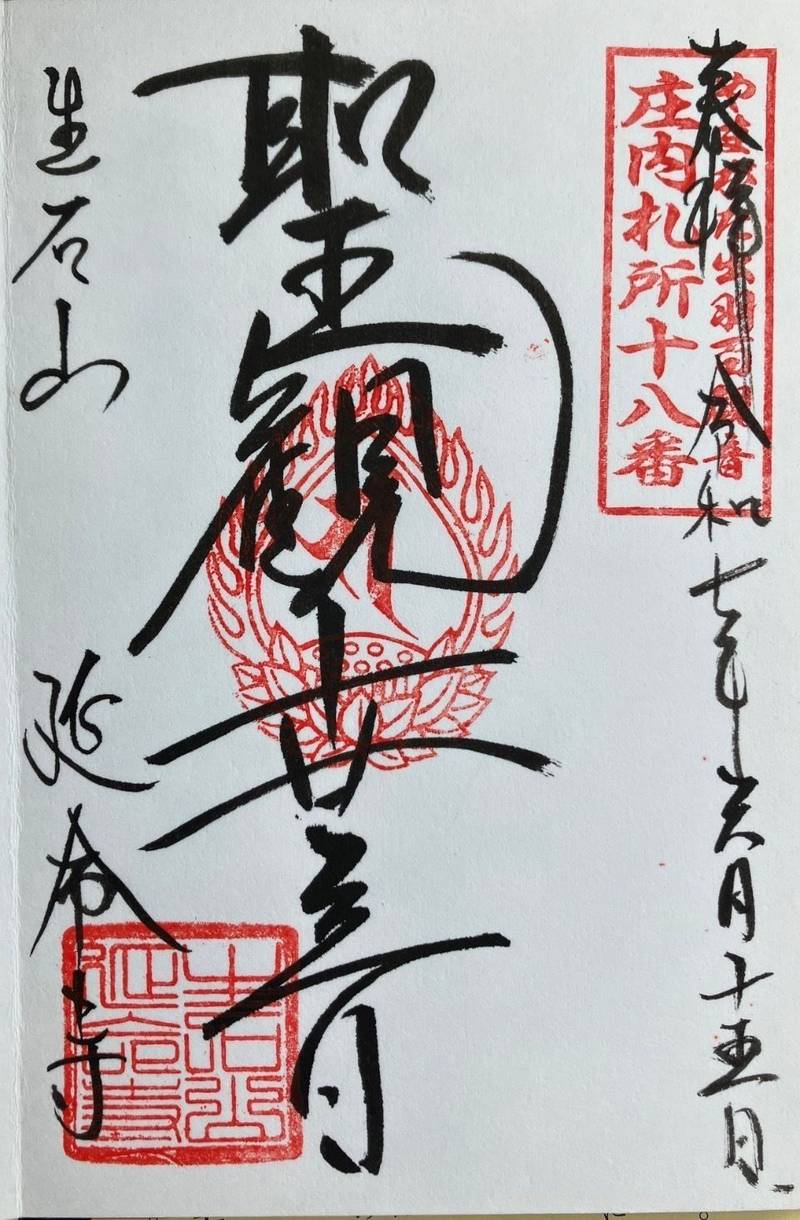 奉拝 令和七年六月十五日
庄内札所十八番
聖観世音
生石山 延命寺
生石山
延命寺